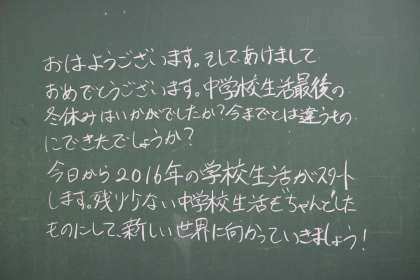 おはようございます。そして、あけまして
おめでとうございます。中学校生活最後の
冬休みはいかがでしたか？今までとは違うもの
にできたでしょうか？
今日から2016年の学校生活がスタート
します。残り少ない中学校生活をちゃんとした
ものにして、新しい世界に向かっていきましょう！